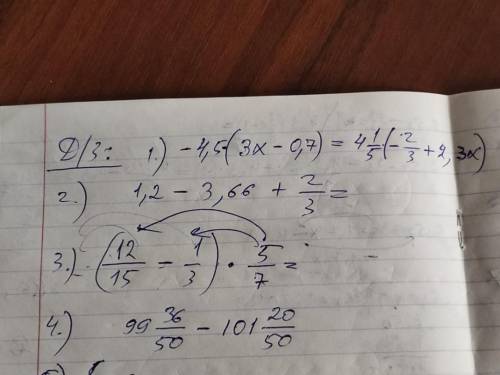 Д/З: 1.) -4,5·(3x - 0,7) = 4 1/5 (-2/3 + 2, 3x)
2.) 1,2 - 3,66 + 2/3 =
3.) -(12/15 - 1/3) · 5/7 =
4.) 99 36/50 - 101 20/50